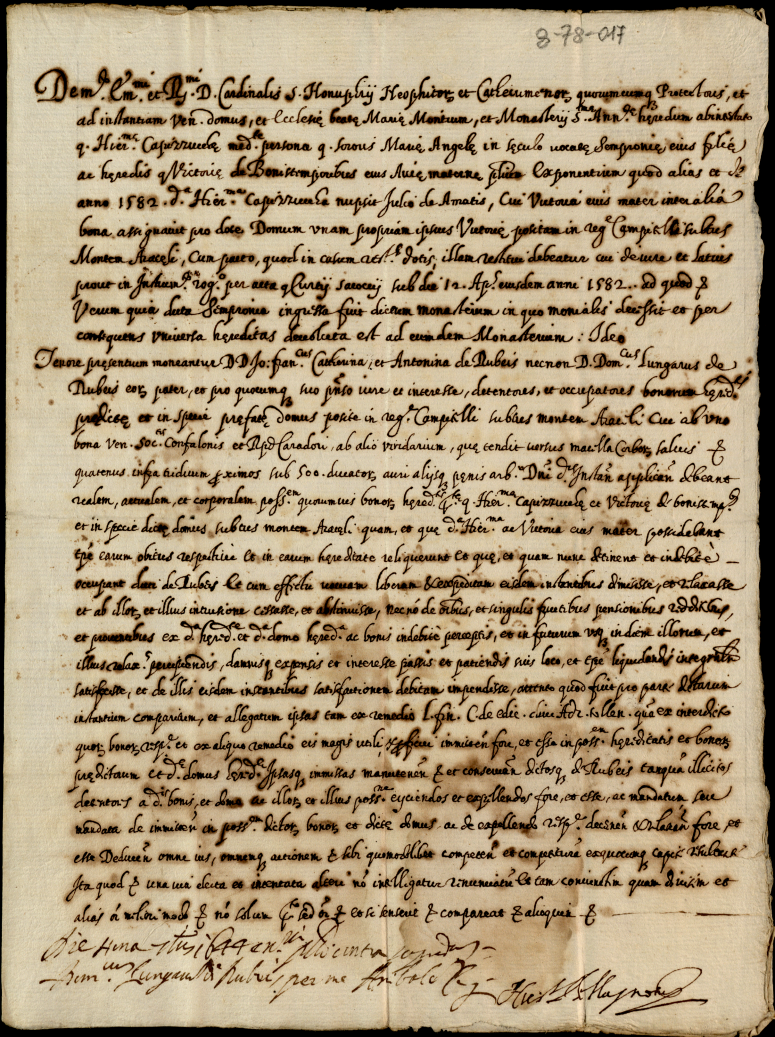 8-78-017
De md.to Em.mi et R.mi D. Cardinalis S. Honuphrij Neophitor, et Cathecumenor, quorumcumq Protectoris, et
ad instantiam Ven. domus, et Ecclesię beatę Marię Montium, et Monasterij S.mę Ann.tę heredum ab intestato
q. Hier.mę Capizzucchę med.te persona q. sororis Marię Angelę in sęculo vocatę Sempronię eius filię
ac heredis q Victorię de Bonistemporibus eius Auię maternę Exponentium quod alias et de
anno 1582. d.a Hier.ma Capizzuccha nupsit Julio de Amatis, Cui Victoria eius mater inter alia
bona assignauit pro dote Domum unam propriam ipsius Victorię positam in reg.e Campitelli subtus
Montem Araceli, Cum pacto, quod in casum rest.s dotis, illam restitui debeatur cui de iure et latius
prout in Instrum.to rog.o per acta q Curtij Saccocij sub die 12 Ap.lis eiusdem anni 1582. sed quod &
Verum quia dicta Sempronia ingressa fuit dictum monasterium in quo monialis decessit et per
consequens universa hereditas devoluta est ad eundem Monasterium: Ideo
Tenore presentium moneantur DD. Jo: fran.cus Catherina, et Antonina de Rubeis necnon D. Dom.cus Lungarus de
Rubeis eor, pater, et pro quocumq suo pnso iure et interesse, detentores, et occupatores bonorum hered.is
predictę et in specie prefatę domus positę in reg.e Campitelli subtus montem Araceli cui ab uno
bona Ven. Soc.is Confalonis et Caradori, ab alio viridarium, quę tendit versus macella Corbor, salvis &
quatenus infra triduum proximos sub 500. ducator, auri alijsq penis arb.o Dni d.is Instan applican debeant
realem, actualem, et corporalem poss.em quorumuis bonor, hered.is q. Hier.ma Capizzucchę et Victorię de bonistemp.s
et in specie dictę domus subtus montem Araceli quam, et quę d.a Hier.ma ac Victoria eius mater possidebant
tpe earum obitus respective et in earum hereditate reliquerunt et quę, et quam nunc detinent et indebitè
occupant dicti de Rubeis et cum effectu vacuam liberam & expeditam eisdem instantibus dimisisse, et relaxasse
et ab illor, et illius intrusione cessasse, et abstinuisse, necnó de oibus, et singulis fructibus pensionibus redditibus,
et prouentibus ex d.a hered.te et d.a domo hered.e ac bonis indebitè perceptis, et in futurum usq in diem illorum, et
illius relax.s percipiendis, damnisq expensis et interesse passis et patiendis suis loco, et tpe liquidandis integrè
satisfecisse, et de illis eisdem instantibus satisfactionem debitam impendisse, attento quod fuit pro parte dictarum
instantium comparitum, et allegatum ipsas tam ex remedio L. fin. C. de edic. diui Adr. tollen. quam ex interdicto
quor, bonor, resp.e et ex aliquo remedio eis magis utili immitten fore, et esse in poss.em hereditatis et bonor,
prędictarum et d.ę domus hered.ę Ipsasq immissas manutenen & et conseruan dictosq de Rubeis tanquam illicitos
detentores a d.is bonis, et domo ac illor, et illius poss.ne eijciendos et expellendos fore, et esse, ac mandatum seu
mandata de immitten in poss.em dictor, bonor, et dictę domus ac de expellendo resp.e decernen & relaxan fore, et
esse Deducen omne ius, omnemq actionem & sibi quomodolibet competen et competitura ex quocumq capite resultare
Ita quod & una via electa et intentata alteri nó intelligatur renunciatum et tam coniunctim quam divisim et
alias ó meliori modo & nó solum sed & et si senserit & compareat & alioquin &
Die 1644
Dom.cus Lungarus de Rubeis per me